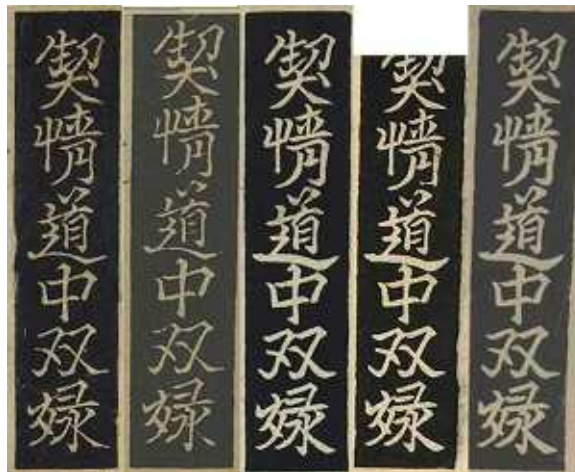 契情道中双娽
契情道中双娽
契情道中双娽
契情道中双娽
契情道中双娽